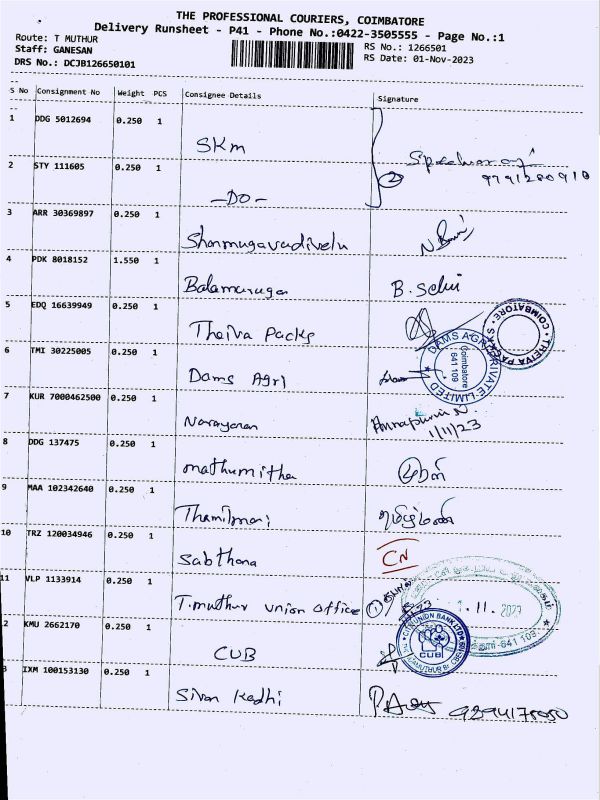 THE PROFESSIONAL COURIERS, COIMBATORE
Delivery Runsheet - P41 - Phone No.:0422-3505555 - Page No.:1
Route: T MUTHUR
RS No.: 1266501
Staff: GANESAN
RS Date: 01-Nov-2023
DRS No.: DCJB126650101
S No Consignment No Weight PCS Consignee Details Signature
1 DDG 5012694 0.250 1
SKM
2 STY 111605 0.250 1
2 9791280910
-DO-
3 ARR 30369897 0.250 1
Shanmugavadivelu
4 PDK 8018152 1.550 1
Balamurugan B. Selvi
5 EDQ 16639949 0.250 1
Theiva Packs
THEIVA PACKS COIMBATORE
6 TMI 30225005 0.250 1
DAMS AGRI PRIVATE LIMITED
Coimbatore
641 109
Dams Agri
7 KUR 7000462500 0.250 1
Narayanan N.
1/11/23
8 DDG 137475 0.250 1
mathumitha
9 MAA 102342640 0.250 1
Thamilmani தமிழ்மணி
10 TRZ 120034946 0.250 1
Sabthana CN
11 VLP 1133914 0.250 1
T.muthur union office 1
1.11.2023
641 109
2 KMU 2662170 0.250 1
CITY UNION BANK LTD
CUB
CUB
3 IXM 100153130 0.250 1
Sivan Kadhi